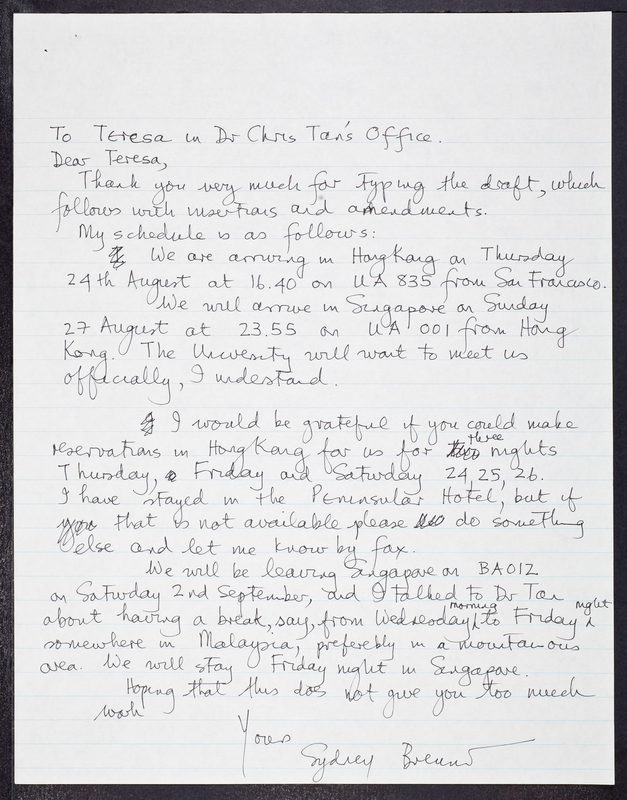 To Teresa in Dr Chris Tan's Office.
Dear Teresa,
Thank you very much for typing the draft, which
follows with insertions and amendments.
My schedule is as follows:
We are arriving in HongKong on Thursday
24th August at 16.40 on UA 835 from San Francisco.
We will arrive in Singapore on Sunday
27 August at 23.55 on UA 001 from Hong
Kong. The University will want to meet us
officially, I understand.
I would be grateful if you could make
reservations in HongKong for us for three nights
Thursday, Friday and Saturday 24, 25, 26.
I have stayed in the Peninsular Hotel, but if
that is not available please do something
else and let me know by fax.
We will be leaving Singapore on BA012
on Saturday 2nd September, and I talked to Dr Tan
about having a break, say, from Wednesday morning to Friday night
somewhere in Malaysia, preferebly in a mountainous
area. We will stay Friday night in Singapore.
Hoping that this does not give you too much
work
Yours
Sydney Brenner